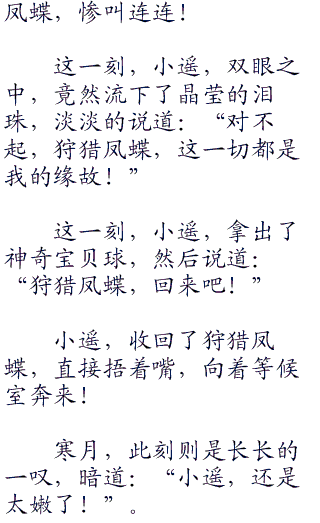 凤蝶，惨叫连连！
这一刻，小遥，双眼之
中，竟然流下了晶莹的泪
珠，淡淡的说道：“对不
起，狩猎凤蝶，这一切都是
我的缘故！”
这一刻，小遥，拿出了
神奇宝贝球，然后说道：
“狩猎凤蝶，回来吧！”
小遥，收回了狩猎凤
蝶，直接捂着嘴，向着等候
室奔来！
寒月，此刻则是长长的
一叹，暗道：“小遥，还是
太嫩了！”。